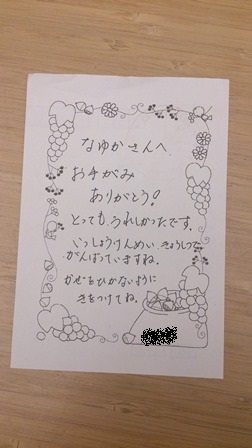 なゆかさんへ、
お手がみ
ありがとう!
とっても、うれしかったです。
いっしょうけんめい、きょうしつで
がんばっていますね。
かぜをひかないように
きをつけてね。